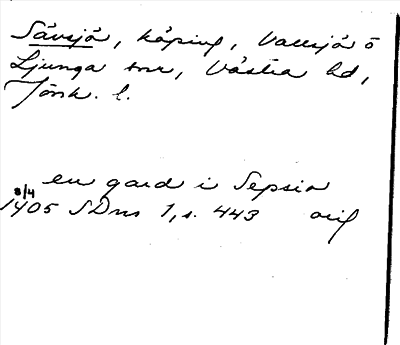 Sävsjö, köping, Vallsjö o
Ljunga snr, Västra hd,
Jönk. l.
en gard i Sepsio
8/4
1405 SDns 1, s. 443 orig